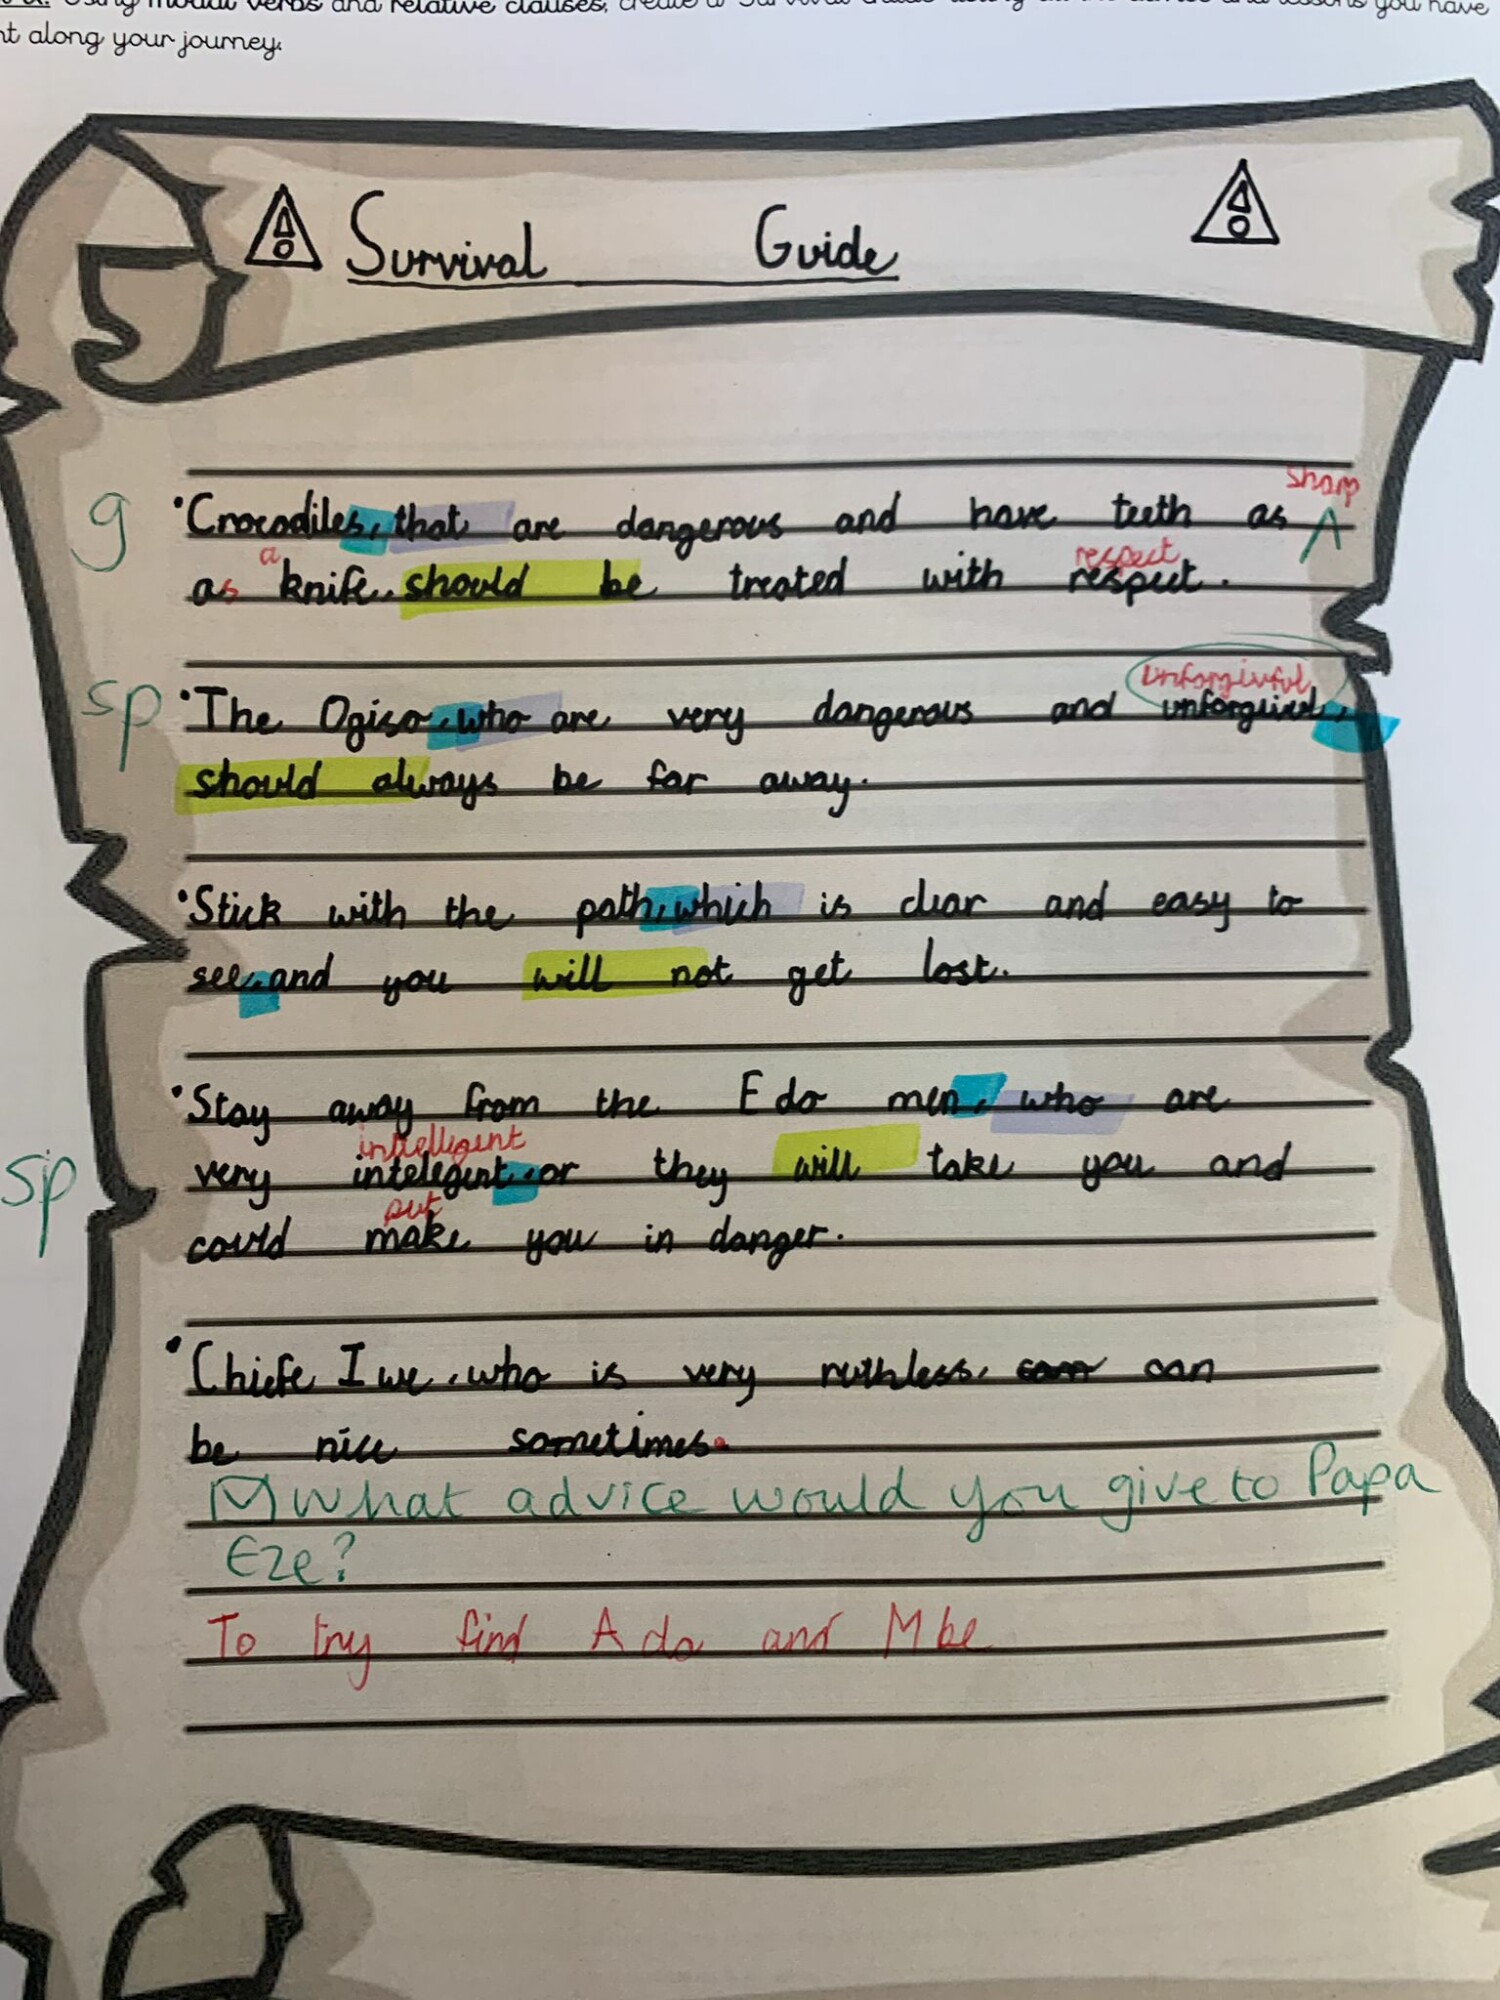 Using modal verbs and relative clauses, create a Survival Guide
you have
along your journey.
Survival Guide
sharp
g
•Crocodiles, that are dangerous and have teeth as ^
a respect
as knife, should be treated with respect.
unforgivful
sp
•The Ogiso, who are very dangerous and
should always be far away.
•Stick with the path, which is clear and easy to
see, and you will not get lost.
•Stay away from the Edo men, who are
intellegent
sp
very intelegent, or they will take you and
put
could make you in danger.
•Chiefe Iwe, who is very ruthless, can
be nice sometimes.
What advice would you give to Papa
Eze?
To try find Ada and Mbe